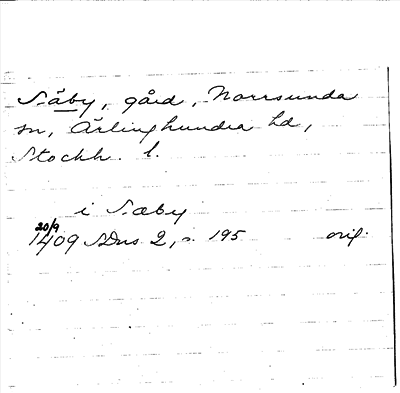 Säby, gård, Norrsunda
sn, Ärlinghundra hd,
Stockh. l.
i Sæby
20/9
1409 SDns 2, s. 195 orig.